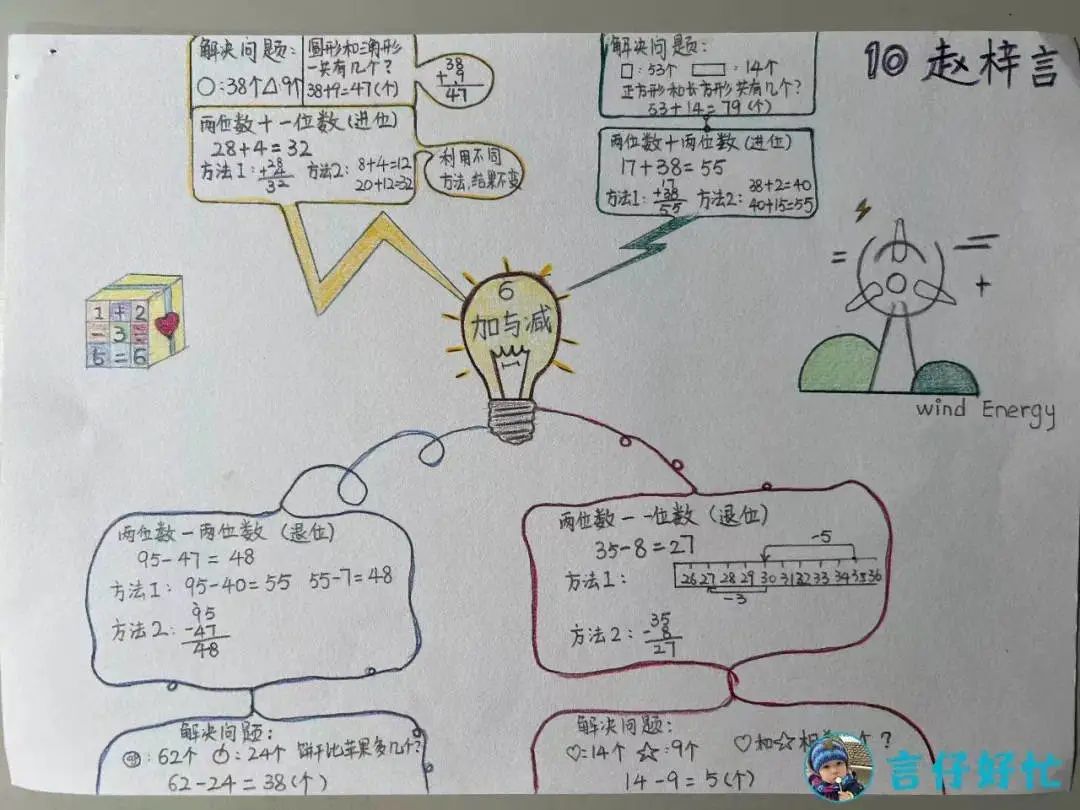 解决问题：
○：38个△9个
圆形和三角形
一共有几个？
38+9=47(个)
38
+ 9
47
两位数＋一位数（进位）
28+4=32
方法1：
28
+ 4
32
方法2：8+4=12
20+12=32
利用不同
方法，结果不变
解决问题：
□：53个 ▭：14个
正方形和长方形共有几个？
53+14=79(个)
两位数＋两位数（进位）
17+38=55
方法1：
17
+38
55
方法2：38+2=40
40+15=55
10 赵梓言
6
加与减
1+2
-3=
5=6
=
+
wind Energy
两位数－两位数（退位）
95-47=48
方法1：95-40=55 55-7=48
方法2：
95
-47
48
解决问题：
：62个 ：24个 饼干比苹果多几个？
62-24=38(个)
两位数－一位数（退位）
35-8=27
方法1：
-5
26 27 28 29 30 31 32 33 34 35 36
-3
方法2：
35
- 8
27
解决问题：
♡=14个 ☆：9个 ♡和☆相个？
14-9=5(个)
言仔好忙